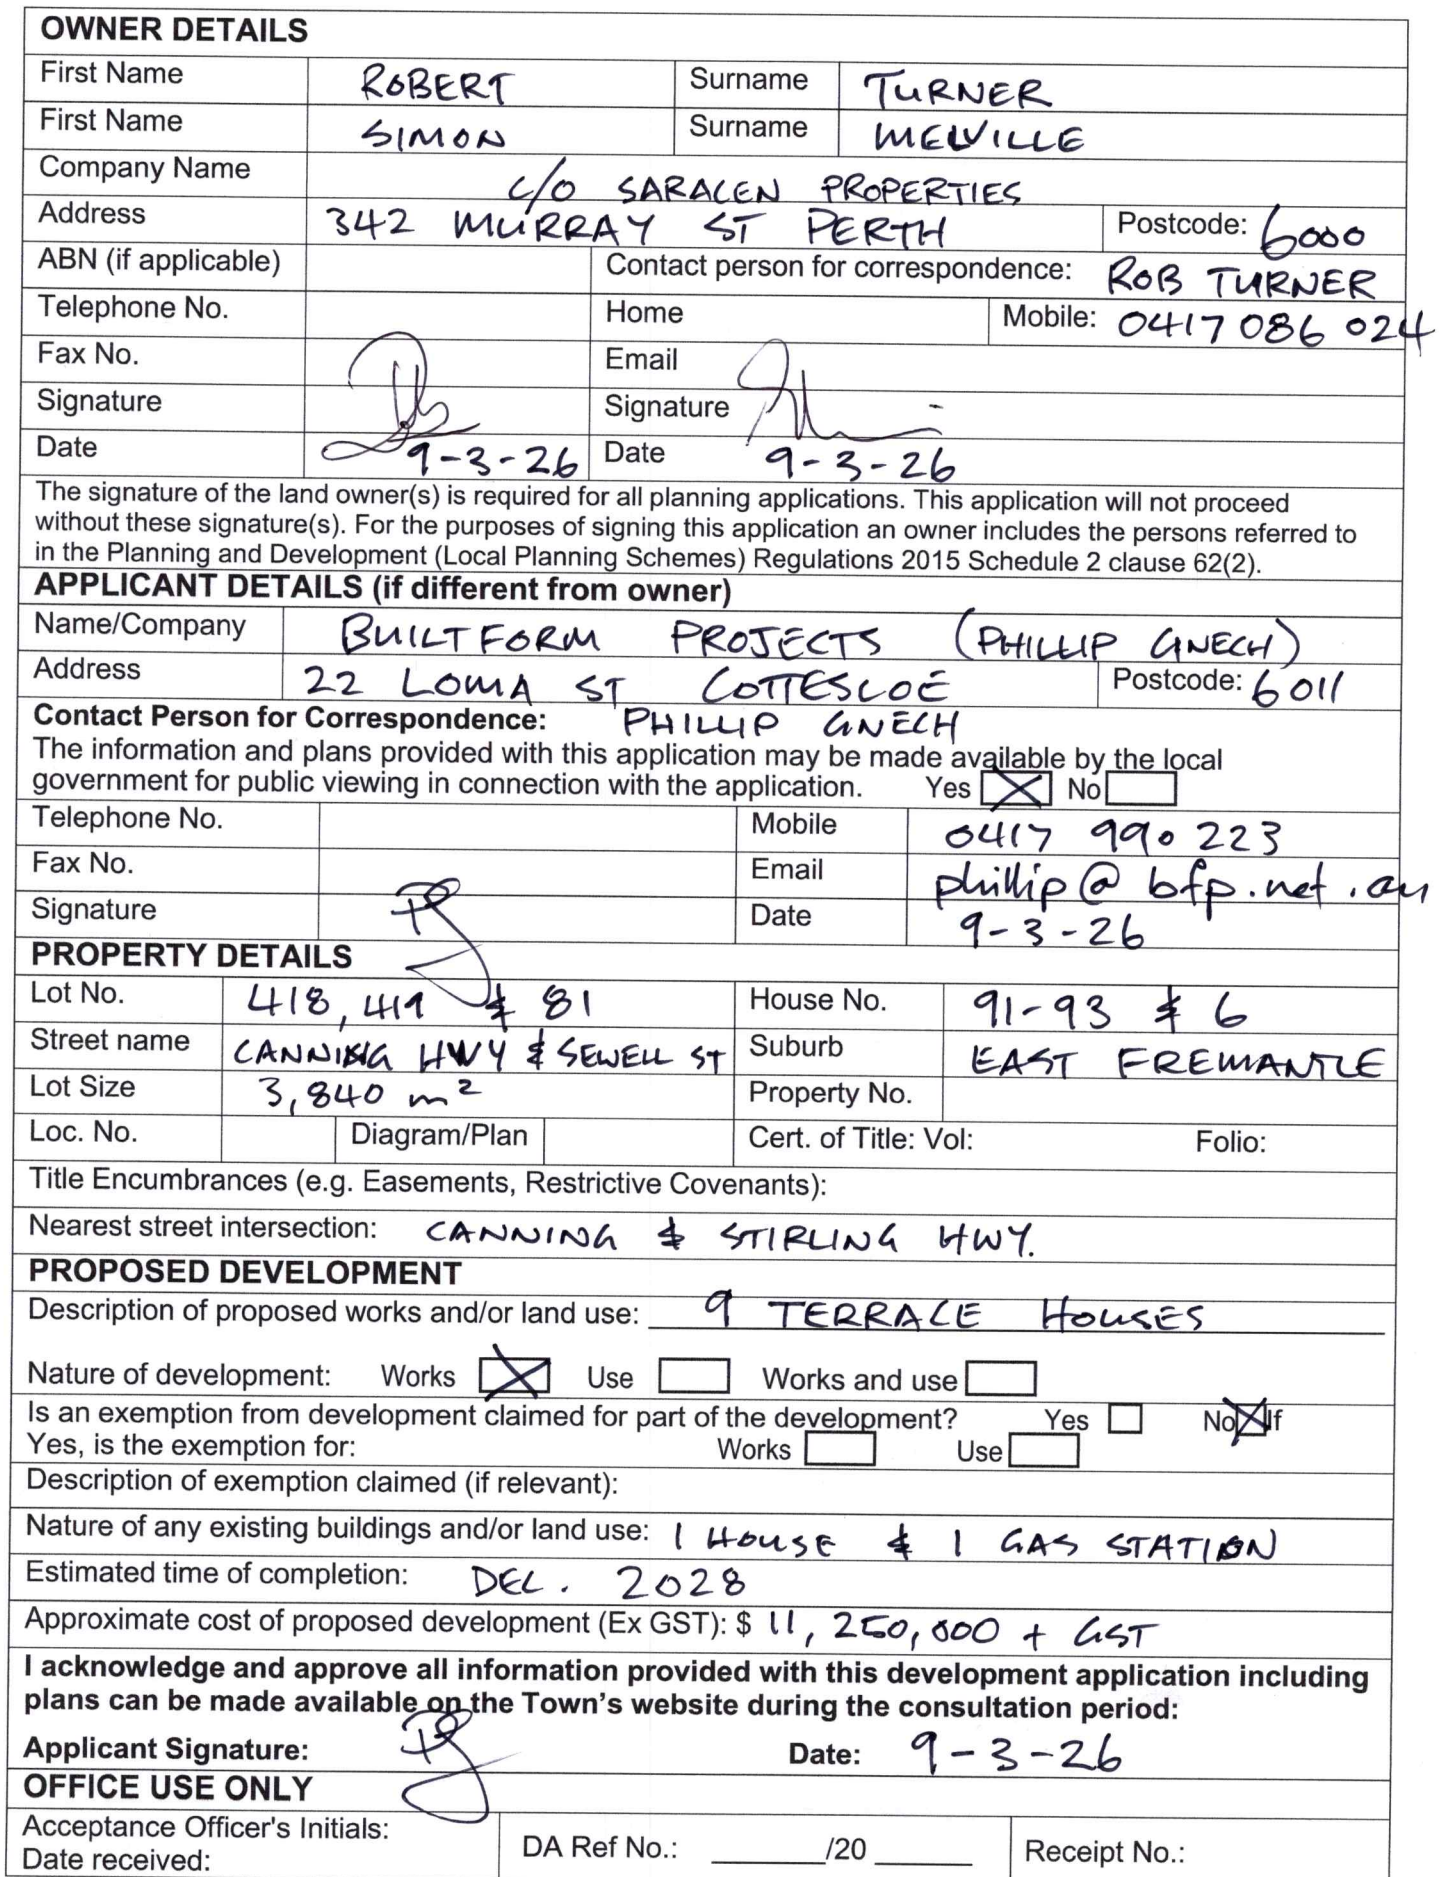 OWNER DETAILS
First Name ROBERT Surname TURNER
First Name SIMON Surname MELVILLE
Company Name C/O SARACEN PROPERTIES
Address 342 MURRAY ST PERTH Postcode: 6000
ABN (if applicable) Contact person for correspondence: ROB TURNER
Telephone No. Home Mobile: 0417 086 024
Fax No. Email
Signature Signature
Date 9-3-26 Date 9-3-26
The signature of the land owner(s) is required for all planning applications. This application will not proceed
without these signature(s). For the purposes of signing this application an owner includes the persons referred to
in the Planning and Development (Local Planning Schemes) Regulations 2015 Schedule 2 clause 62(2).
APPLICANT DETAILS (if different from owner)
Name/Company BUILTFORM PROJECTS (PHILLIP GNECH)
Address 22 LOMA ST COTTESLOE Postcode: 6011
Contact Person for Correspondence: PHILLIP GNECH
The information and plans provided with this application may be made available by the local
government for public viewing in connection with the application. Yes No
Telephone No. Mobile 0417 990 223
Fax No. Email phillip@bfp.net.au
Signature Date 9-3-26
PROPERTY DETAILS
Lot No. 418, 419 & 81 House No. 91-93 & 6
Street name CANNING HWY & SEWELL ST Suburb EAST FREMANTLE
Lot Size 3,840 m² Property No.
Loc. No. Diagram/Plan Cert. of Title: Vol: Folio:
Title Encumbrances (e.g. Easements, Restrictive Covenants):
Nearest street intersection: CANNING & STIRLING HWY.
PROPOSED DEVELOPMENT
Description of proposed works and/or land use: 9 TERRACE HOUSES
Nature of development: Works Use Works and use
Is an exemption from development claimed for part of the development? Yes No If
Yes, is the exemption for: Works Use
Description of exemption claimed (if relevant):
Nature of any existing buildings and/or land use: 1 HOUSE & 1 GAS STATION
Estimated time of completion: DEC. 2028
Approximate cost of proposed development (Ex GST): $ 11,250,000 + GST
I acknowledge and approve all information provided with this development application including
plans can be made available on the Town's website during the consultation period:
Applicant Signature: Date: 9-3-26
OFFICE USE ONLY
Acceptance Officer's Initials:
Date received: DA Ref No.: ______/20 ______ Receipt No.: